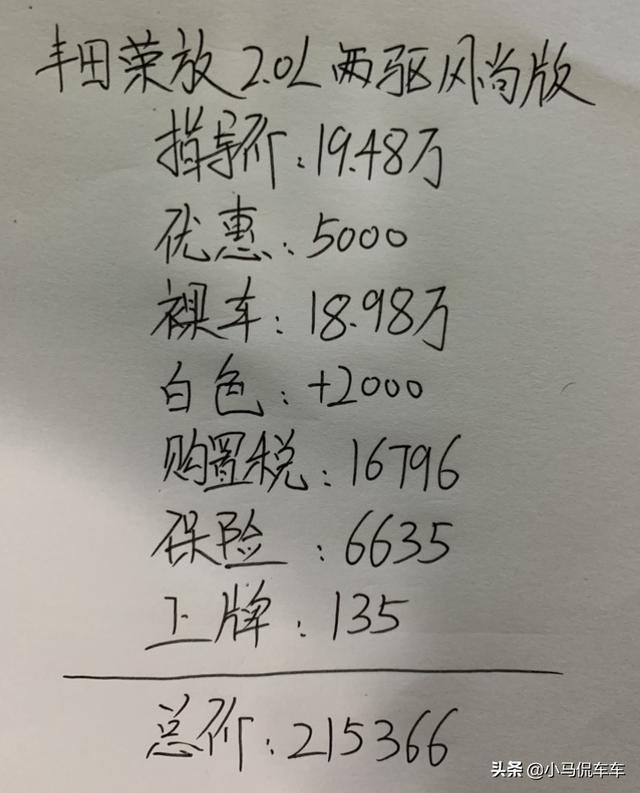 丰田荣放2.0L两驱风尚版
指导价:19.48万
优惠:5000
裸车:18.98万
白色:+2000
购置税:16796
保险:6635
上牌:135
总价:215366
头条 @小马侃车车